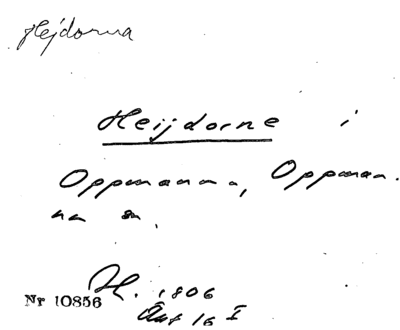 Hejdorna
Heijdorne i
Oppmanna, Oppman-
na sn.
H. 1806
Nr 10856
Akt 16 I